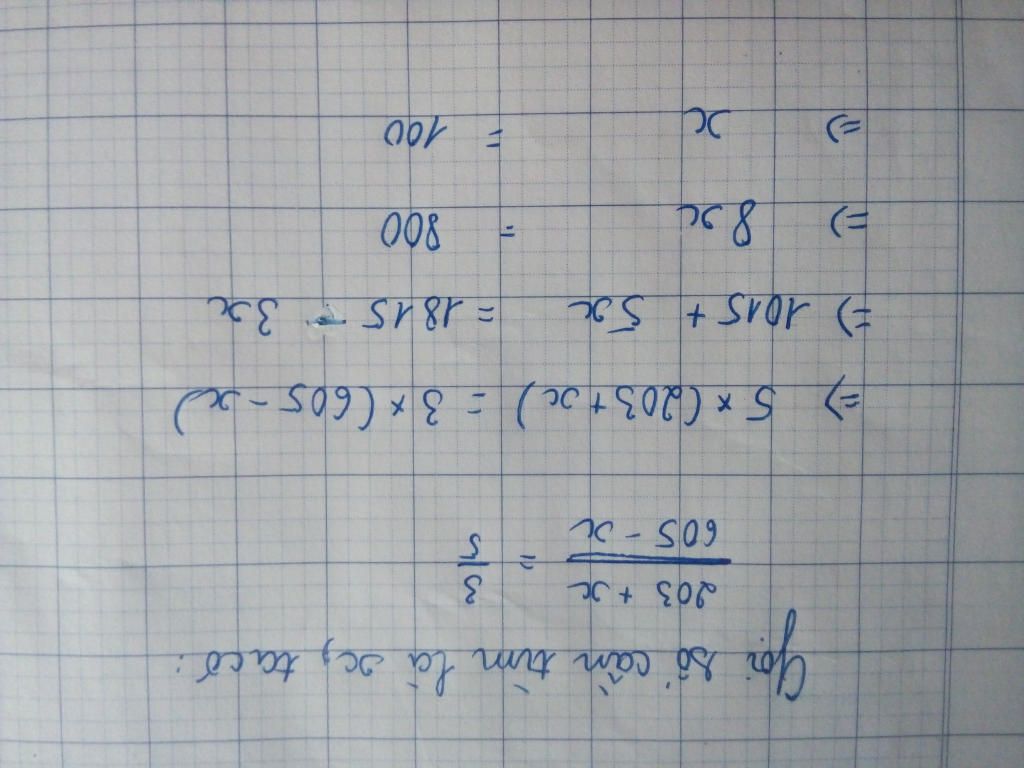 Gọi số cần tìm là x, ta có:
203 + x / 605 - x = 3/5
=> 5 × (203 + x) = 3 × (605 - x)
=> 1015 + 5x = 1815 - 3x
=> 8x = 800
=> x = 100